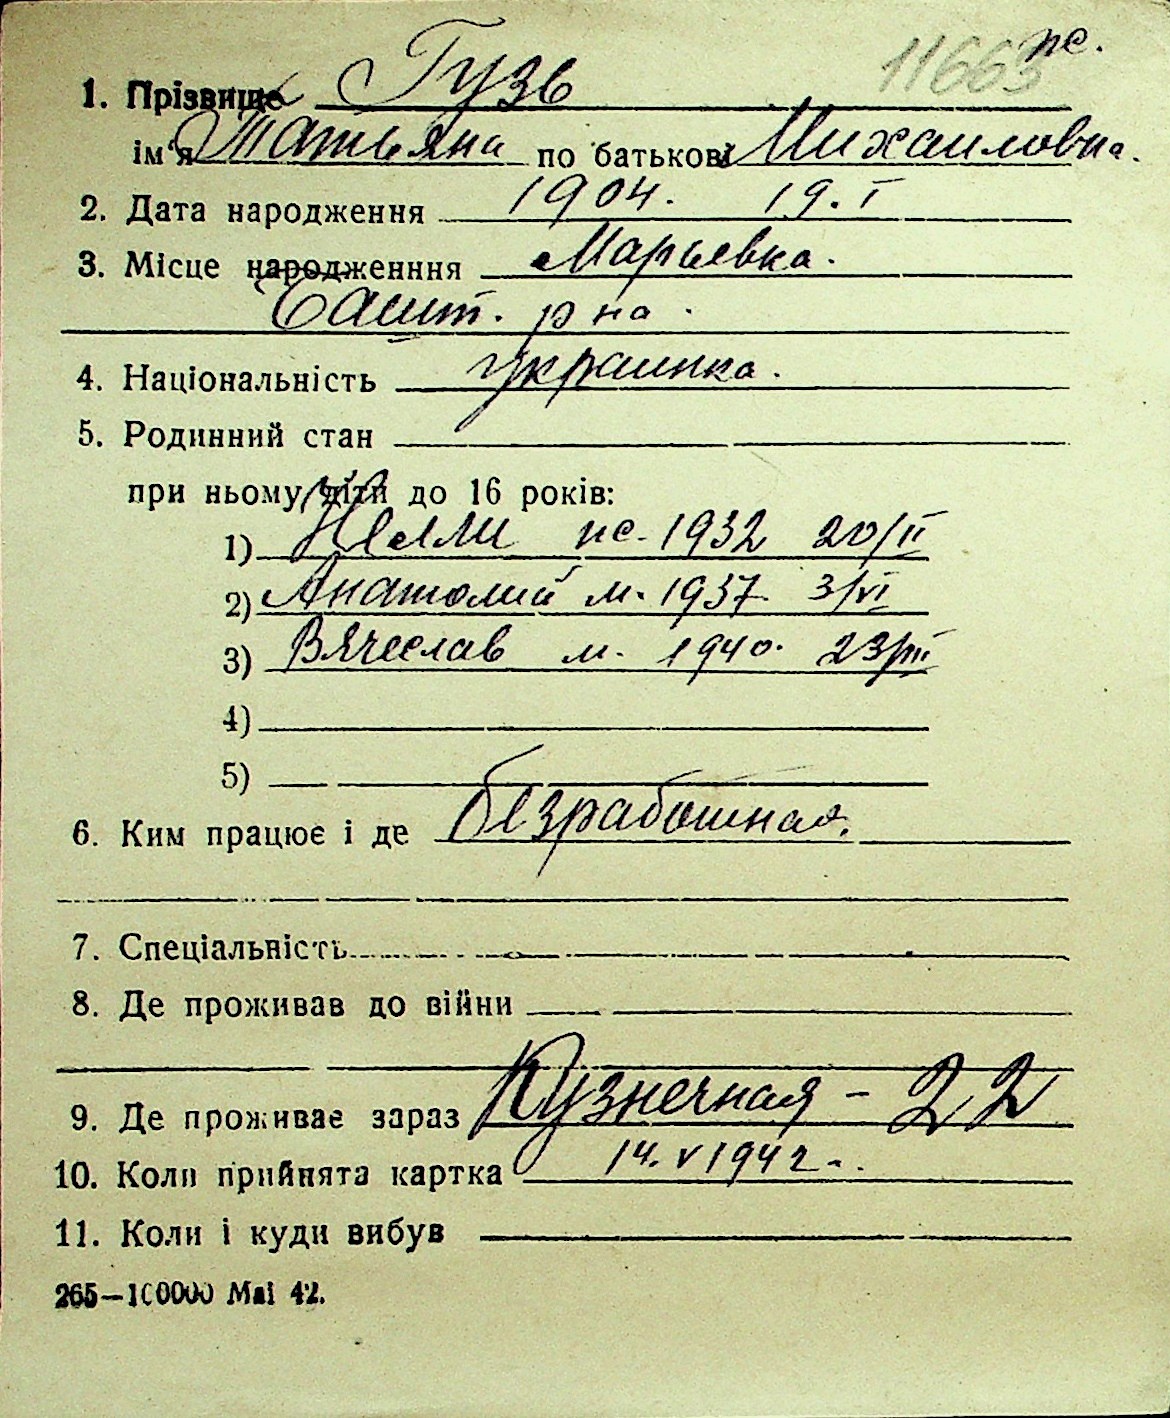 11663 пс.
1. Прізвище Гузь
ім'я Татьяна по батькові Михаиловна.
2. Дата народження 1904. 19.I
3. Місце народженння Марьевка.
Башт. р на.
4. Національність украинка.
5. Родинний стан
при ньому діти до 16 років:
1) Нелли пс. 1932 20/II
2) Анатолий м. 1937. 3/VI
3) Вячеслав м. 1940. 23/III
4)
5)
6. Ким працює і де безработная.
7. Спеціальність
8. Де проживав до війни
9. Де проживає зараз Кузнечная - 22
10. Коли прийнята картка 14. V 1942.
11. Коли і куди вибув
265—100000 Маі 42.